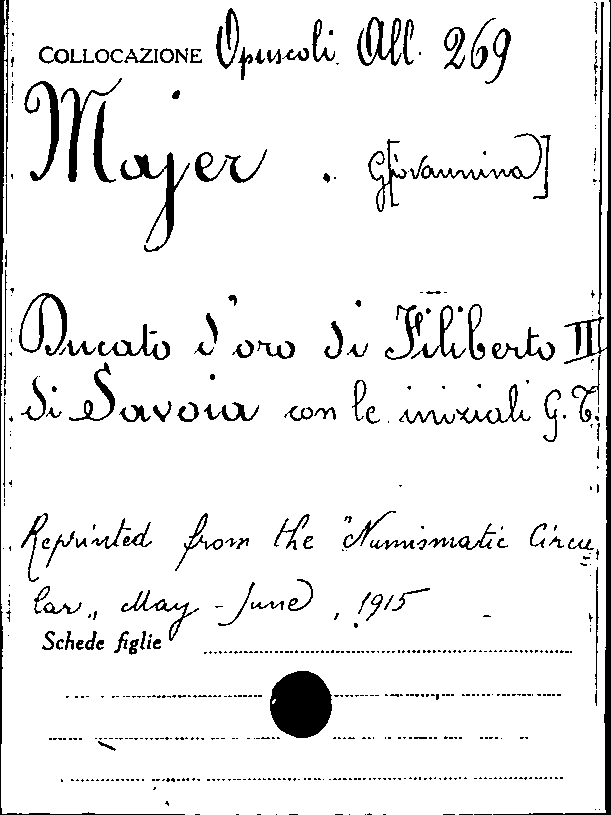 COLLOCAZIONE Opuscoli All. 269
Majer . G[iovannina]
Ducato d'oro di Filiberto II
di Savoia con le iniziali G. T.
Reprinted from the "Numismatic Circu=
lar„ May - June, 1915 -
Schede figlie